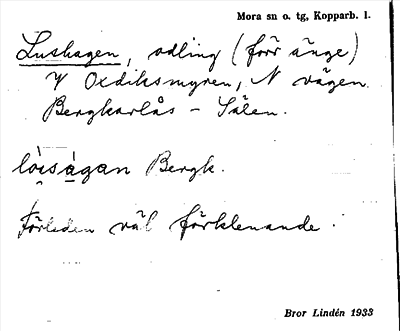 Mora sn o. tg, Kopparb. l.
Lushagen, odling (förr änge)
V Oxdiksmyren, N vägen
Bergkarlås - Sälen.
lòisagan Bergk.
Förleden väl förklenande.
Bror Lindén 1933